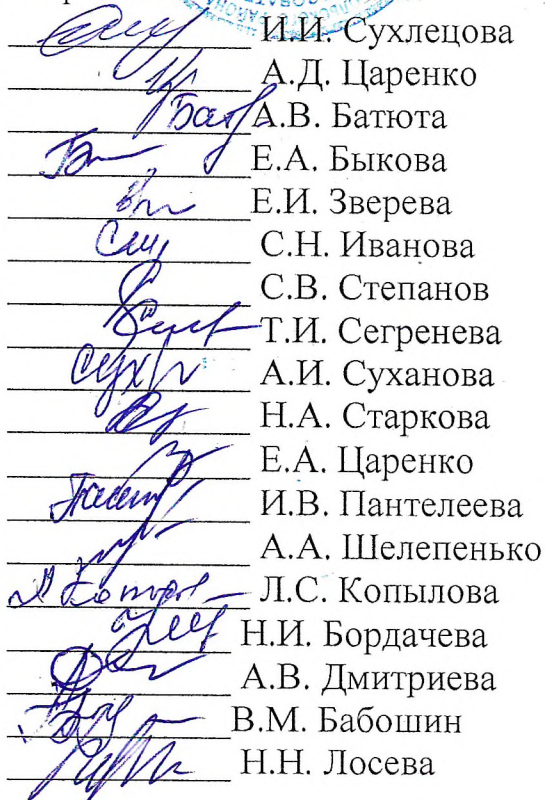 И.И. Сухлецова
А.Д. Царенко
А.В. Батюта
Е.А. Быкова
Е.И. Зверева
С.Н. Иванова
С.В. Степанов
Т.И. Сегренева
А.И. Суханова
Н.А. Старкова
Е.А. Царенко
И.В. Пантелеева
А.А. Шелепенько
Л.С. Копылова
Н.И. Бордачева
А.В. Дмитриева
В.М. Бабошин
Н.Н. Лосева